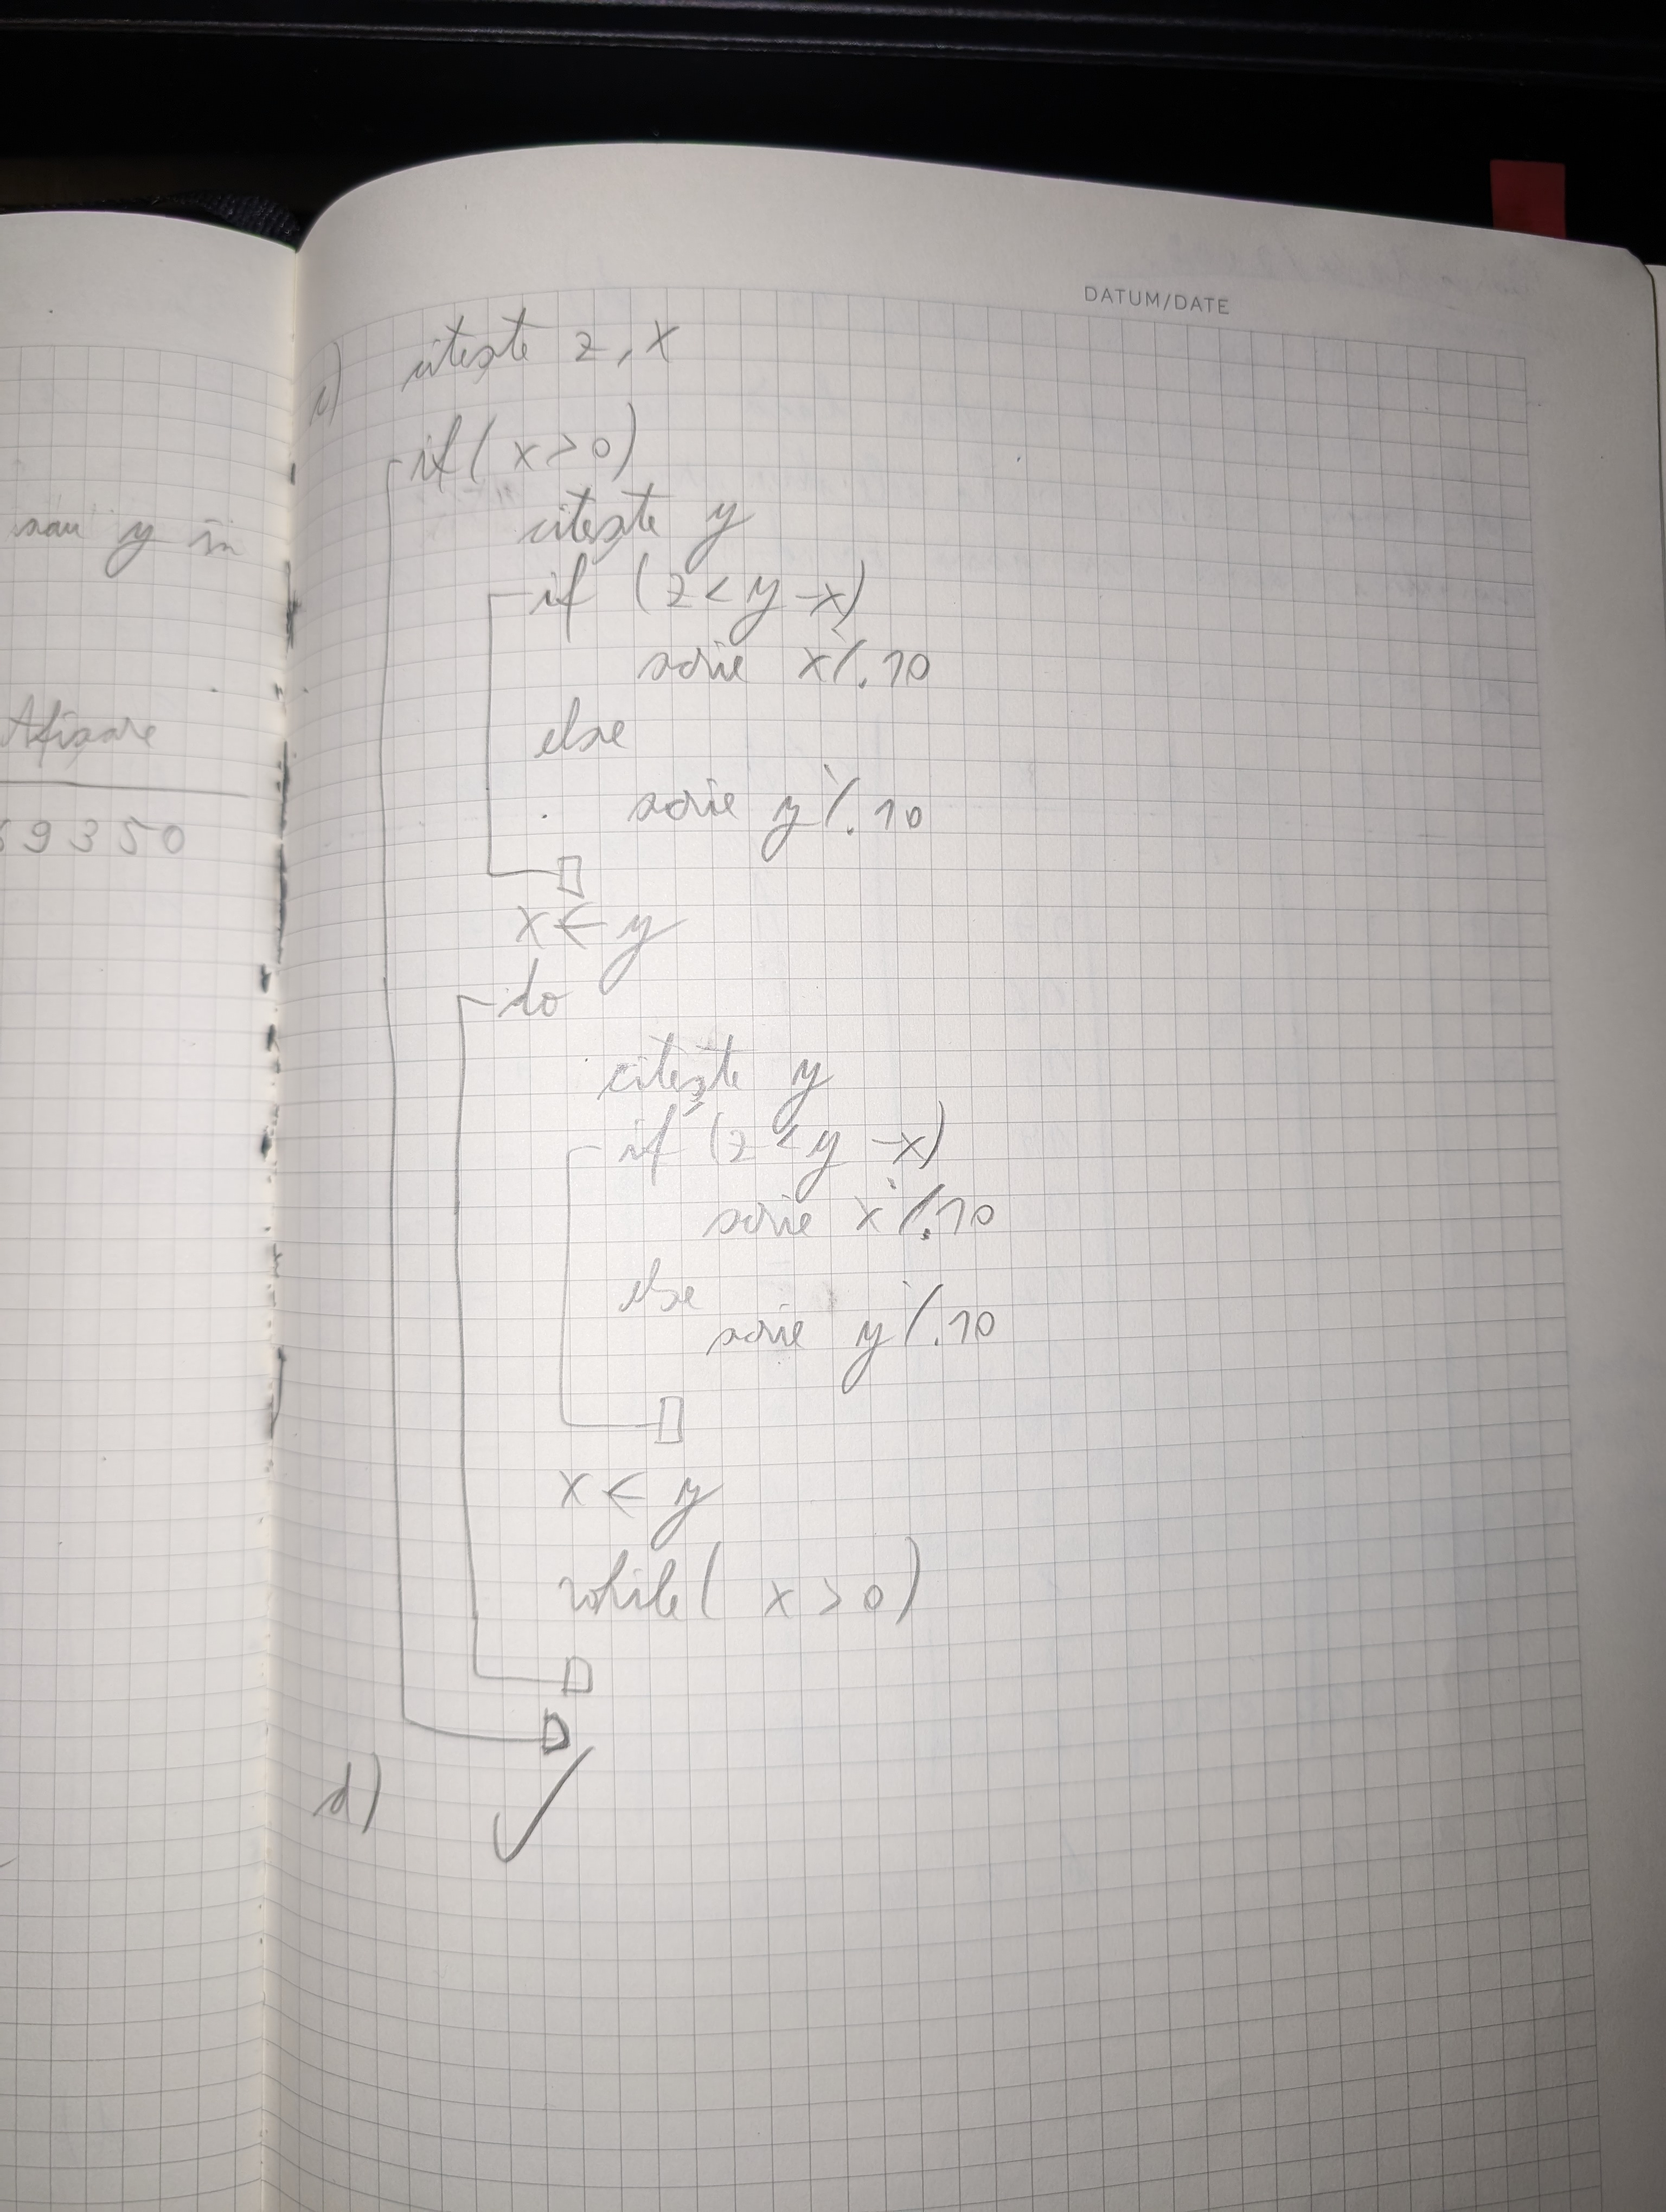 DATUM/DATE
sau y în
Afișare
9350
c) citește z, x
if (x > 0)
citește y
if (z < y - x)
scrie x % 10
else
scrie y % 10
x ← y
do
citește y
if (z < y - x)
scrie x % 10
else
scrie y % 10
x ← y
while (x > 0)
d)